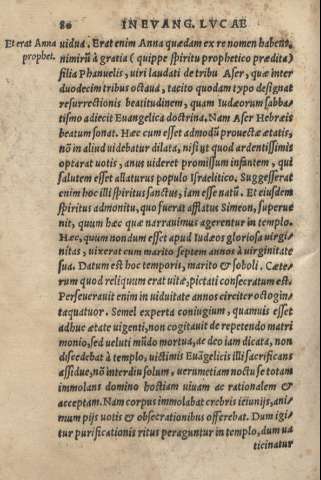 80 IN EVANG. LVCAE
Et erat Anna prophet.
uidua. Erat enim Anna quædam ex re nomen habens,
nimirũ à gratia (quippe spiritu prophetico prædita)
filia Phanuelis, uiri laudati de tribu Aser, quæ inter
duodecim tribus octaua, tacito quodam typo designat
resurrectionis beatitudinem, quam Iudæorum sabba/
tismo adiecit Euangelica doctrina. Nam Aser Hebræis
beatum sonat. Hæc cum esset admodũ prouectæ ætatis,
nõ in aliud uidebatur dilata, nisi ut quod ardentissimis
optarat uotis, anus uideret promissum infantem, qui
salutem esset allaturus populo Israelitico. Suggesserat
enim hoc illi spiritus sanctus, iam esse natũ. Et eiusdem
spiritus admonitu, quo fuerat afflatus Simeon, superue
nit, quum hæc quæ narrauimus agerentur in templo.
Hæc, quum nondum esset apud Iudæos gloriosa uirgi/
nitas, uixerat cum marito septem annos à uirginitate
sua. Datum est hoc temporis, marito & soboli. Cæte/
rum quod reliquum erat uitæ, pietati consecratum est.
Perseuerauit enim in uiduitate annos circiter octogin
taquatuor. Semel experta coniugium, quamuis esset
adhuc ætate uigenti, non cogitauit de repetendo matri
monio, sed ueluti mũdo mortua, ac deo iam dicata, non
discedebat à templo, uictimis Euãgelicis illi sacrificans
assidue, nõ interdiu solum, uerumetiam noctu se totam
immolans domino hostiam uiuam ac rationalem &
acceptam. Nam corpus immolabat crebris ieiunijs, ani/
mum pijs uotis & obsecrationibus offerebat. Dum igi/
tur purificationis ritus peraguntur in templo, dum ua
ticinatur